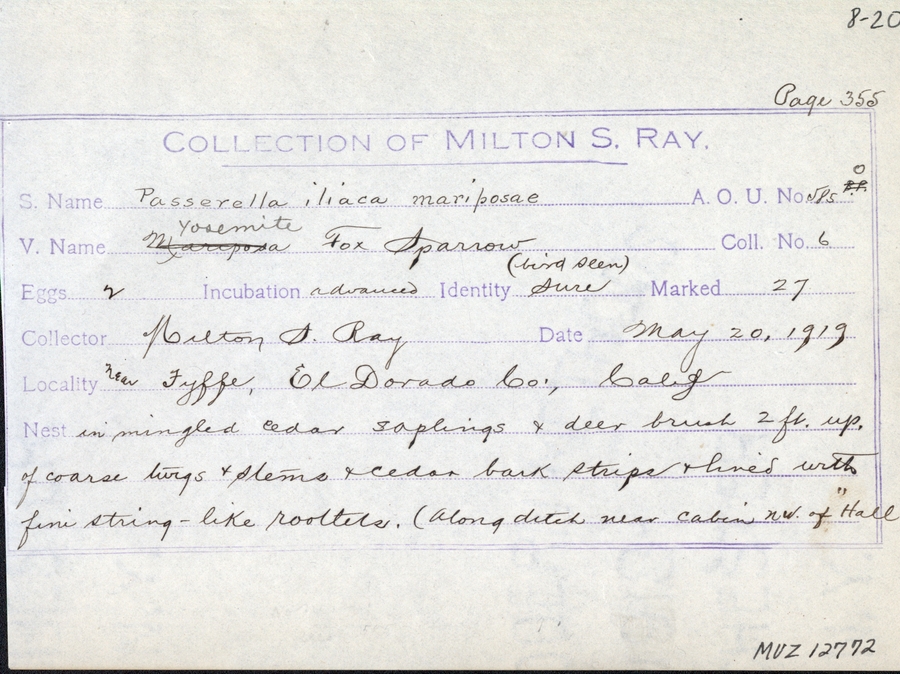 8-20
Page 355
COLLECTION OF MILTON S. RAY.
S. Name Passerella iliaca mariposae A. O. U. No. 585
V. Name Mariposa Yosemite Fox Sparrow Coll. No. 6
Eggs 2 Incubation advanced Identity (bird seen) Sure Marked 27
Collector Milton S. Ray Date May 20, 1919
Locality near Fyffe, El Dorado Co., Calif
Nest in mingled cedar saplings & deer brush 2 ft. up.
of coarse twigs & stems & cedar bark strips & lined with
fine string-like rootlets. (Along ditch near cabin nw. of "Hall
MVZ 12772